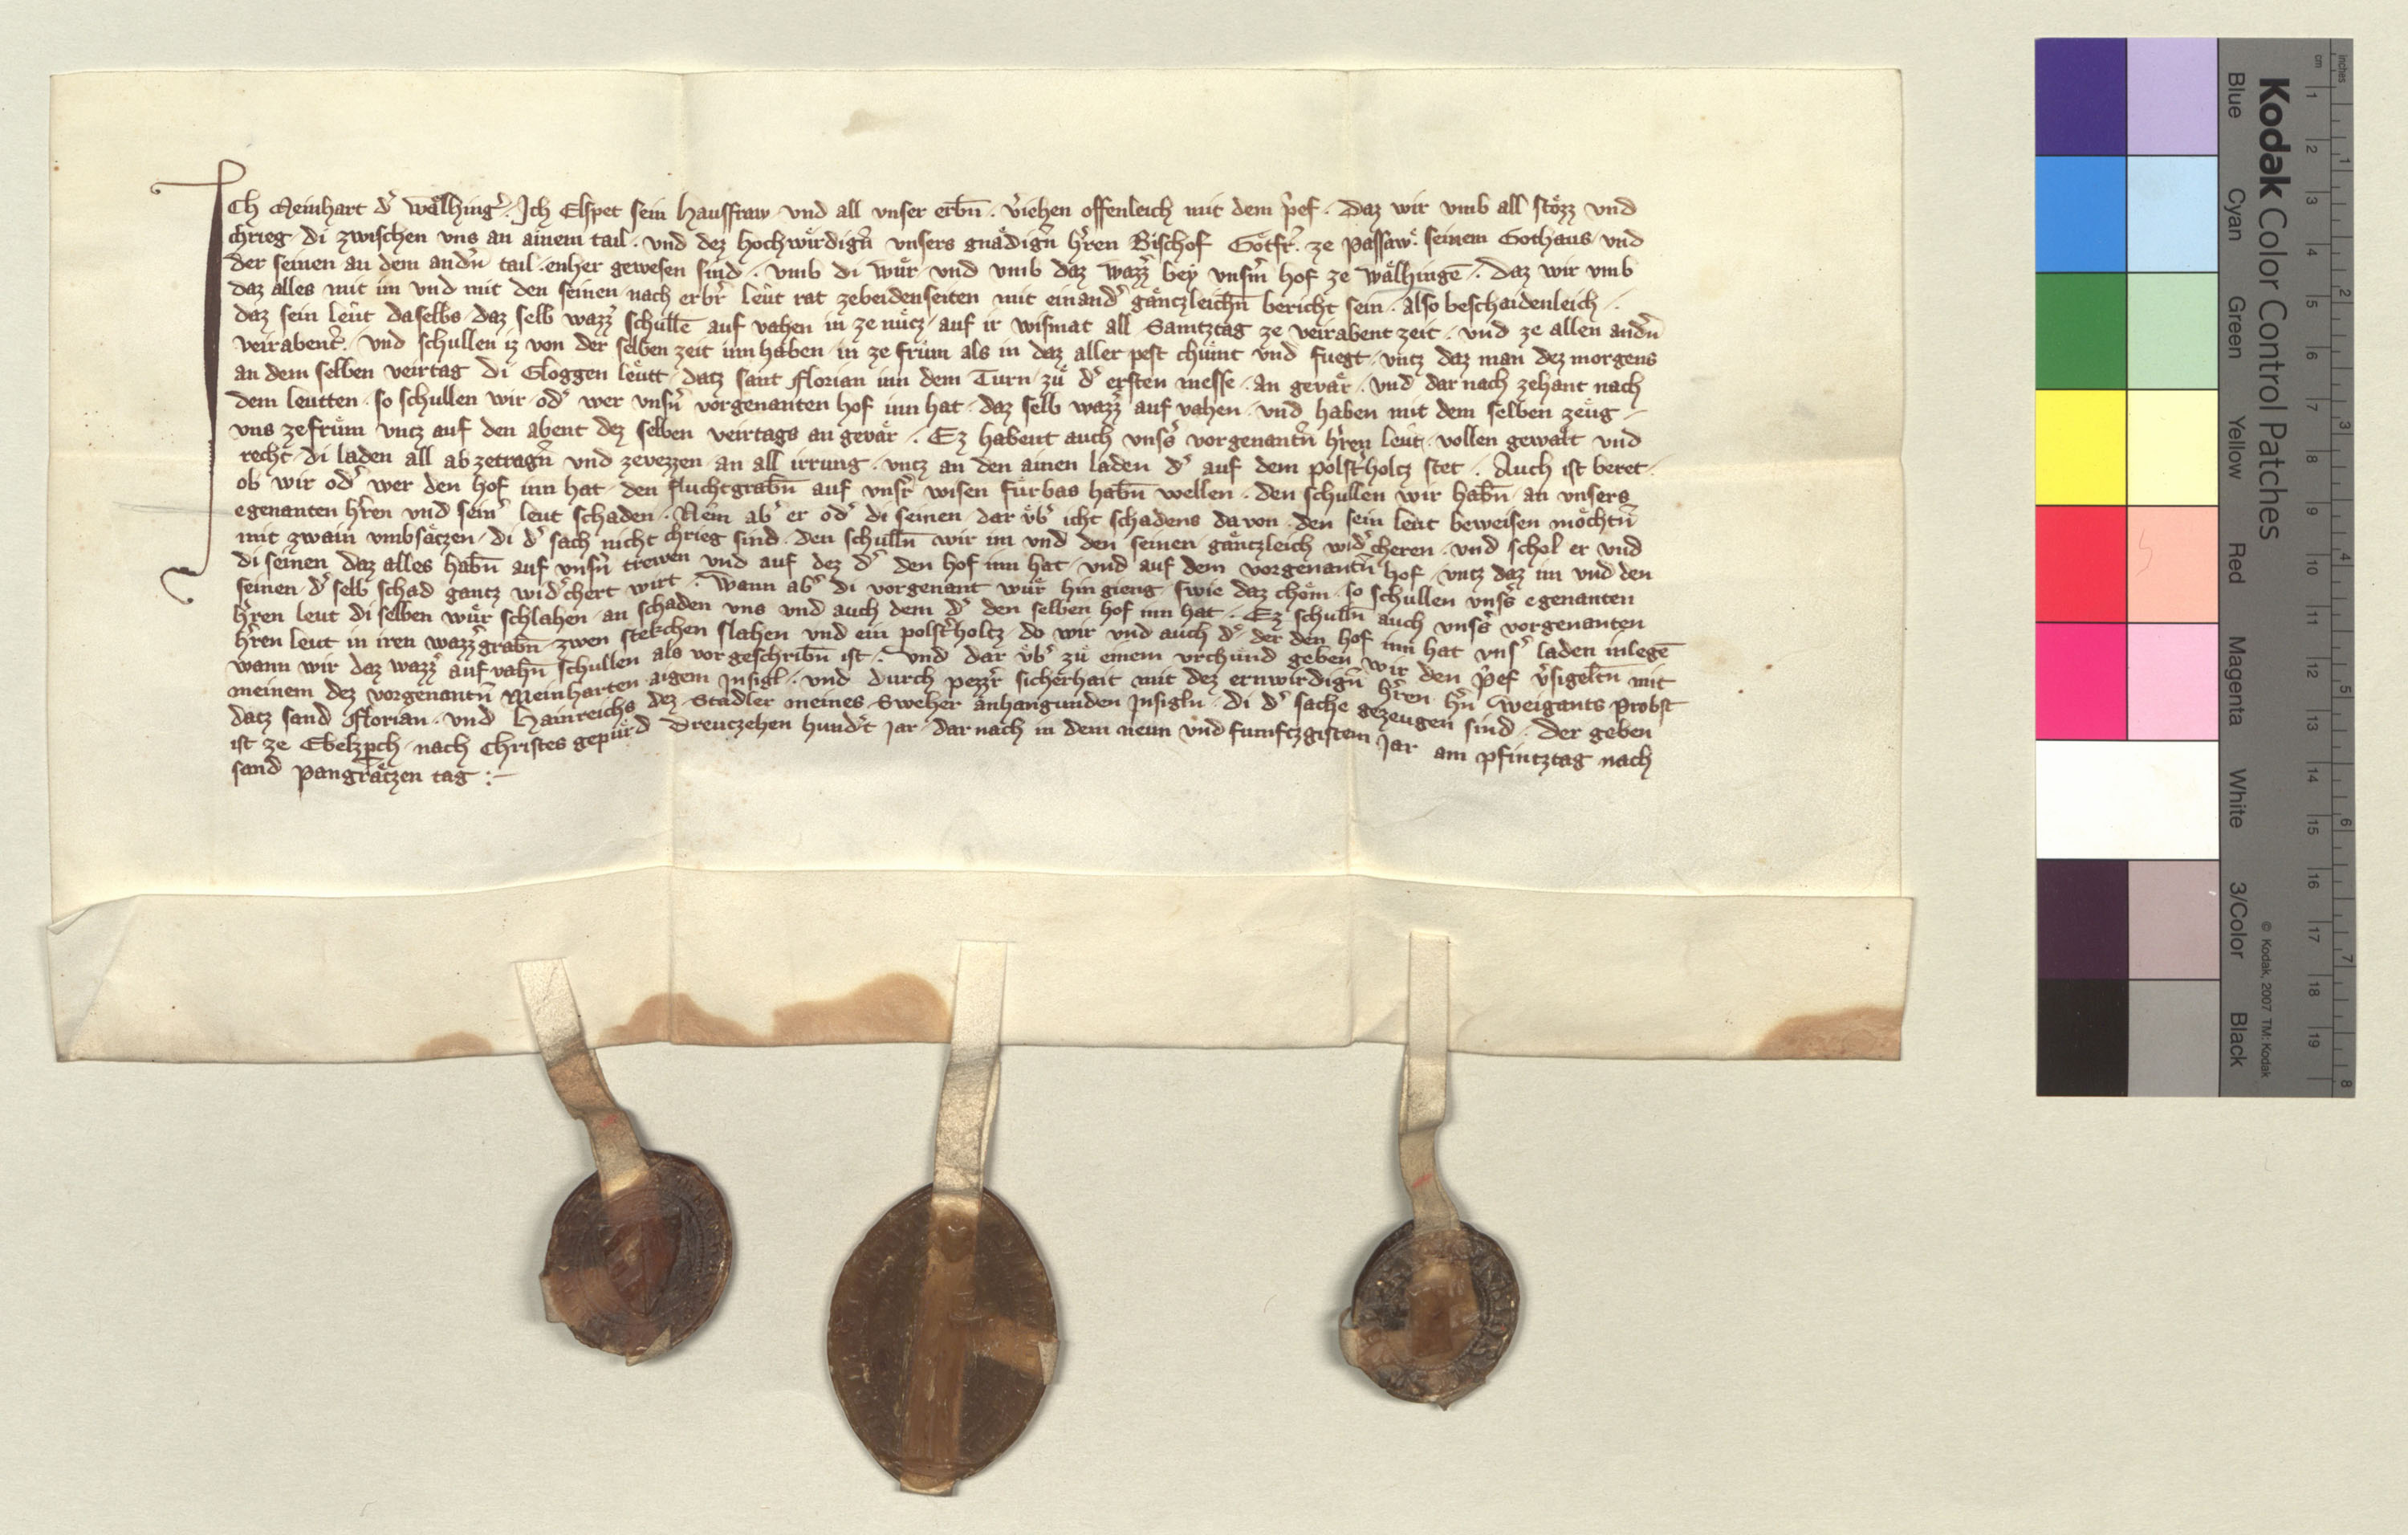 Ich Meinhart d᾿ Waͤlhing᾿. Ich Elspet sein Hausfraw und all vnser erbn̄. v᾿iehen offenleich mit dem p᾿ef. Daz wir vmb all stoͤzz vnd
chrieg. di zwischen vns an ainem tail. vnd dez hochwuͤrdign̄ vnsers gnaͤdign̄ h᾿ren Bischof Goͤtfr᾿. ze Passaw. seinem Gothaus vnd
der seinen an dem andn̄ tail. enher gewesen sind. vmb di wuͤr. vnd vmb daz wazz᾿ bey vnsm̄ hof ze waͤlhingē. Daz wir vmb
daz alles mit im vnd mit den seinen nach erbr᾿ leut rat zebeidenseiten mit einand᾿ gaͤnczleichn̄ bericht sein. also beschaidenleich.
daz sein leut daselbs. daz selb wazz᾿ schullē auf vahen in ze nucz. auf ir wismat all Samtztag ze veirabent zeit. vnd ze allen andn̄
veirabent᾿. vnd schullen iz von der selben zeit inn haben in ze frum als in daz aller pest chuͤmt vnd fuegt. vntz daz man dez morgens
an dem selben veirtag di Gloggen leutt. datz sant Florian inn dem Turn. zuͤ d᾿ ersten messe. an gevaͤr. vnd dar nach zehant nach
dem leutten. so schullen wir. od᾿ wer vnsn̄ vorgenanten hof inn hat. daz selb wazz᾿ auf vahen. vnd haben mit dem selben zeug
vns zefrum vntz auf den abent dez selben veirtags an gevaͤr. Ez habent auch vnss᾿ vorgenantn̄ h᾿ren leut. vollen gewalt vnd
recht. di laden all ab zetragn̄ vnd zevezzen an all irrung. vntz an den ainen laden d᾿ auf dem polst᾿holtz stet. Auch ist beret.
ob wir od᾿ wer den hof inn hat. den fluchtgrabn̄ auf vnsr᾿ wisen fuͤrbas habn̄ wellen. den schullen wir habn̄ an vnsers
egenanten h᾿ren vnd sein᾿ leut schaden. Nem ab᾿ er od᾿ di seinen. dar vͤb᾿ icht schadens da von. den sein leut beweisen moͤchtn̄
mit zwain vmbsaͤtzen. di d᾿ sach nicht chrieg sind. den schulln̄ wir im vnd den seinen gaͤntzleich wid᾿cheren. vnd schol er vnd
di seinen daz alles habn̄ auf vnsn̄ trewen vnd auf dez d᾿ den hof inn hat. vnd auf dem vorgenantn̄ hof. vntz daz im vnd den
seinen. d᾿ selb schad gantz wid᾿chert wirt. Wann ab᾿ di vorgenant wuͤr hin gieng. swie daz choͤm. so schullen vnss᾿ egenanten
h᾿ren leut di selben wuͤr schlahen. an schaden vns vnd auch dem d᾿ den selben hof inn hat. Ez schulln̄ auch vnss᾿ vorgenanten
h᾿ren leut in iren wazz᾿grabn̄. zwen stekchen slahen vnd ein polst᾿holtz. do wir vnd auch d᾿. der den hof inn hat vns᾿ laden inlegē
wann wir daz wazz᾿ auf vahn̄ schullen als vor geschribn̄ ist. Vnd dar vͤb᾿ zuͤ einem vrchuͤnd geben wir den p᾿ef v᾿sigeltn̄ mit
meinem dez vorgenantn̄ Meinharten aigem Insigl. vnd durch pezzr᾿ sicherhait mit dez ernwirdign̄ h᾿ren hn̄ Weigants Probst
datz sand Florian. vnd Hainreichs dez Stadler meines Sweher anhangunden Insigln. di d᾿ sache gezeugen sind. Der geben
ist ze Ebelzpch. nach Christes gepuͤrd Dreuczehen hund᾿t Jar. dar nach in dem neun vnd fumfczgistem Jar am pfintztag nach
sand Pangraͤtzen tag :~
Kodak Color Control Patches
Blue Cyan Green Yellow Red Magenta White 3/Color Black
© Kodak, 2007 TM: Kodak
inches 1 2 3 4 5 6 7 8
cm 1 2 3 4 5 6 7 8 9 10 11 12 13 14 15 16 17 18 19